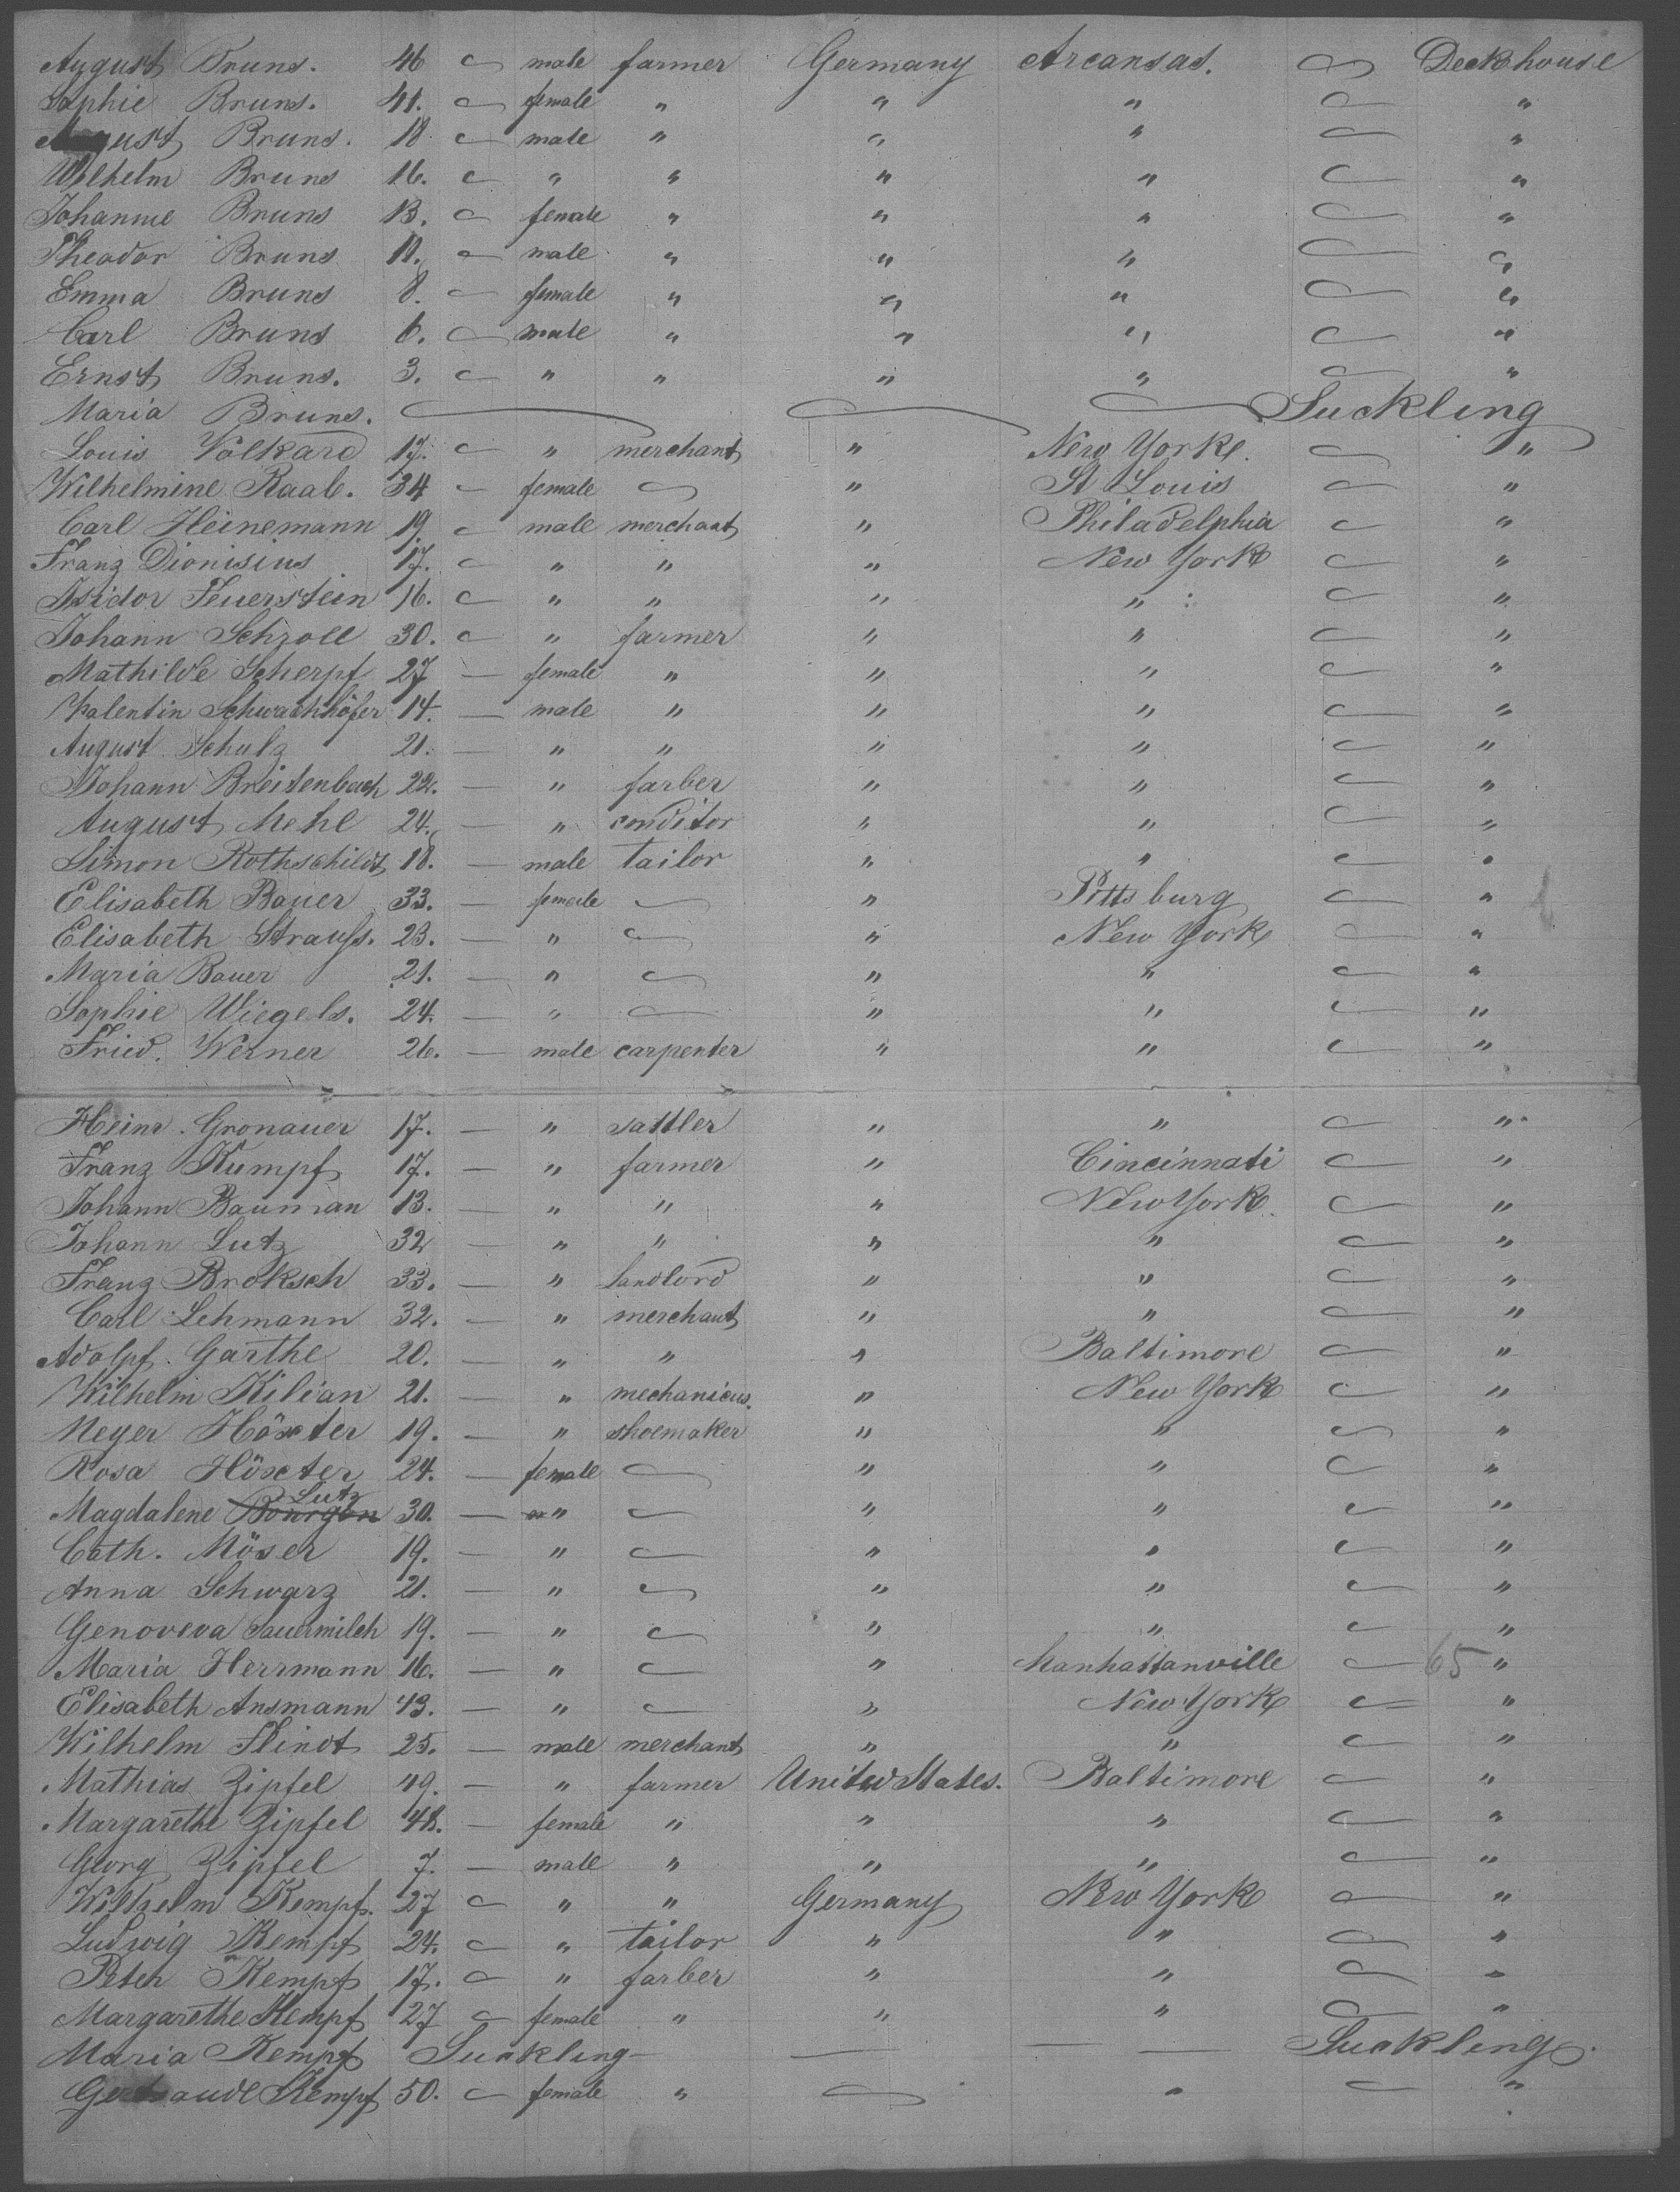 August Bruns. 46 male farmer Germany Arcansas. Deckhouse
Sophie Bruns. 41. female " " " "
August Bruns. 18. male " " " "
Wilhelm Bruns 16. " " " " "
Johanne Bruns 13. female " " " "
Theodor Bruns 11. male " " " "
Emma Bruns 8. female " " " "
Carl Bruns 6. male " " " "
Ernst Bruns. 3. " " " " "
Maria Bruns. Suckling
Louis Völkard 17. " merchant " New Yorke. "
Wilhelmine Raab. 34 female " St Louis "
Carl Heinemann 19. male merchant " Philadelphia "
Franz Dionisius 17. " " " New York "
Isidor Feuerstein 16. " " " " "
Johann Schroll 30. " farmer " " "
Mathilde Scherpf 27 — female " " " "
Valentin Schwachhöfer 14. — male " " " "
August Schulz 21. — " " " " "
Johann Breitenbach 22. — " farber " " "
August Mehl 24. — " conditor " " "
Simon Rothschildt 18. — male tailor " " "
Elisabeth Bauer 33. — female " Pittsburg "
Elisabeth Strauss. 23. — " " New York "
Maria Bauer 21. — " " " "
Sophie Wiegels. 24. — " " " "
Fried. Werner 26. — male carpenter " " "
Heinr. Gronauer 17. — " sattler " " "
Franz Kumpf 17. — " farmer " Cincinnati "
Johann Bauman 13. — " " " New York. "
Johann Lutz 32 — " " " " "
Franz Broksch 33. — " landlord " " "
Carl Lehmann 32. — " merchant " " "
Adolpf. Garthe 20. — " " " Baltimore "
Wilhelm Kilian 21. — " mechanicus. " New York "
Meyer Höxter 19. — " shoemaker " " "
Rosa Höxter 24. — female " " "
Magdalene Bourgon Lutz 30. — " " " "
Cath. Möser 19. — " " " "
Anna Schwarz 21. — " " " "
Genoveva Sauermilch 19. — " " " "
Maria Herrmann 16. — " " Manhattanville 65 "
Elisabeth Ansmann 43. — " " New York "
Wilhelm Flindt 25. — male merchant " " "
Mathias Zipfel 49. — " farmer United States. Baltimore "
Margarethe Zipfel 48. — female " " " "
Georg Zipfel 7. — male " " " "
Wilhelm Kempf. 27 " " Germany New York "
Ludwig Kempf 24. " tailor " " "
Peter Kempf 17. " farber " " "
Margarethe Kempf 27 female " " " "
Maria Kempf Suckling — — — — Suckling.
Kempf 50. female " " "